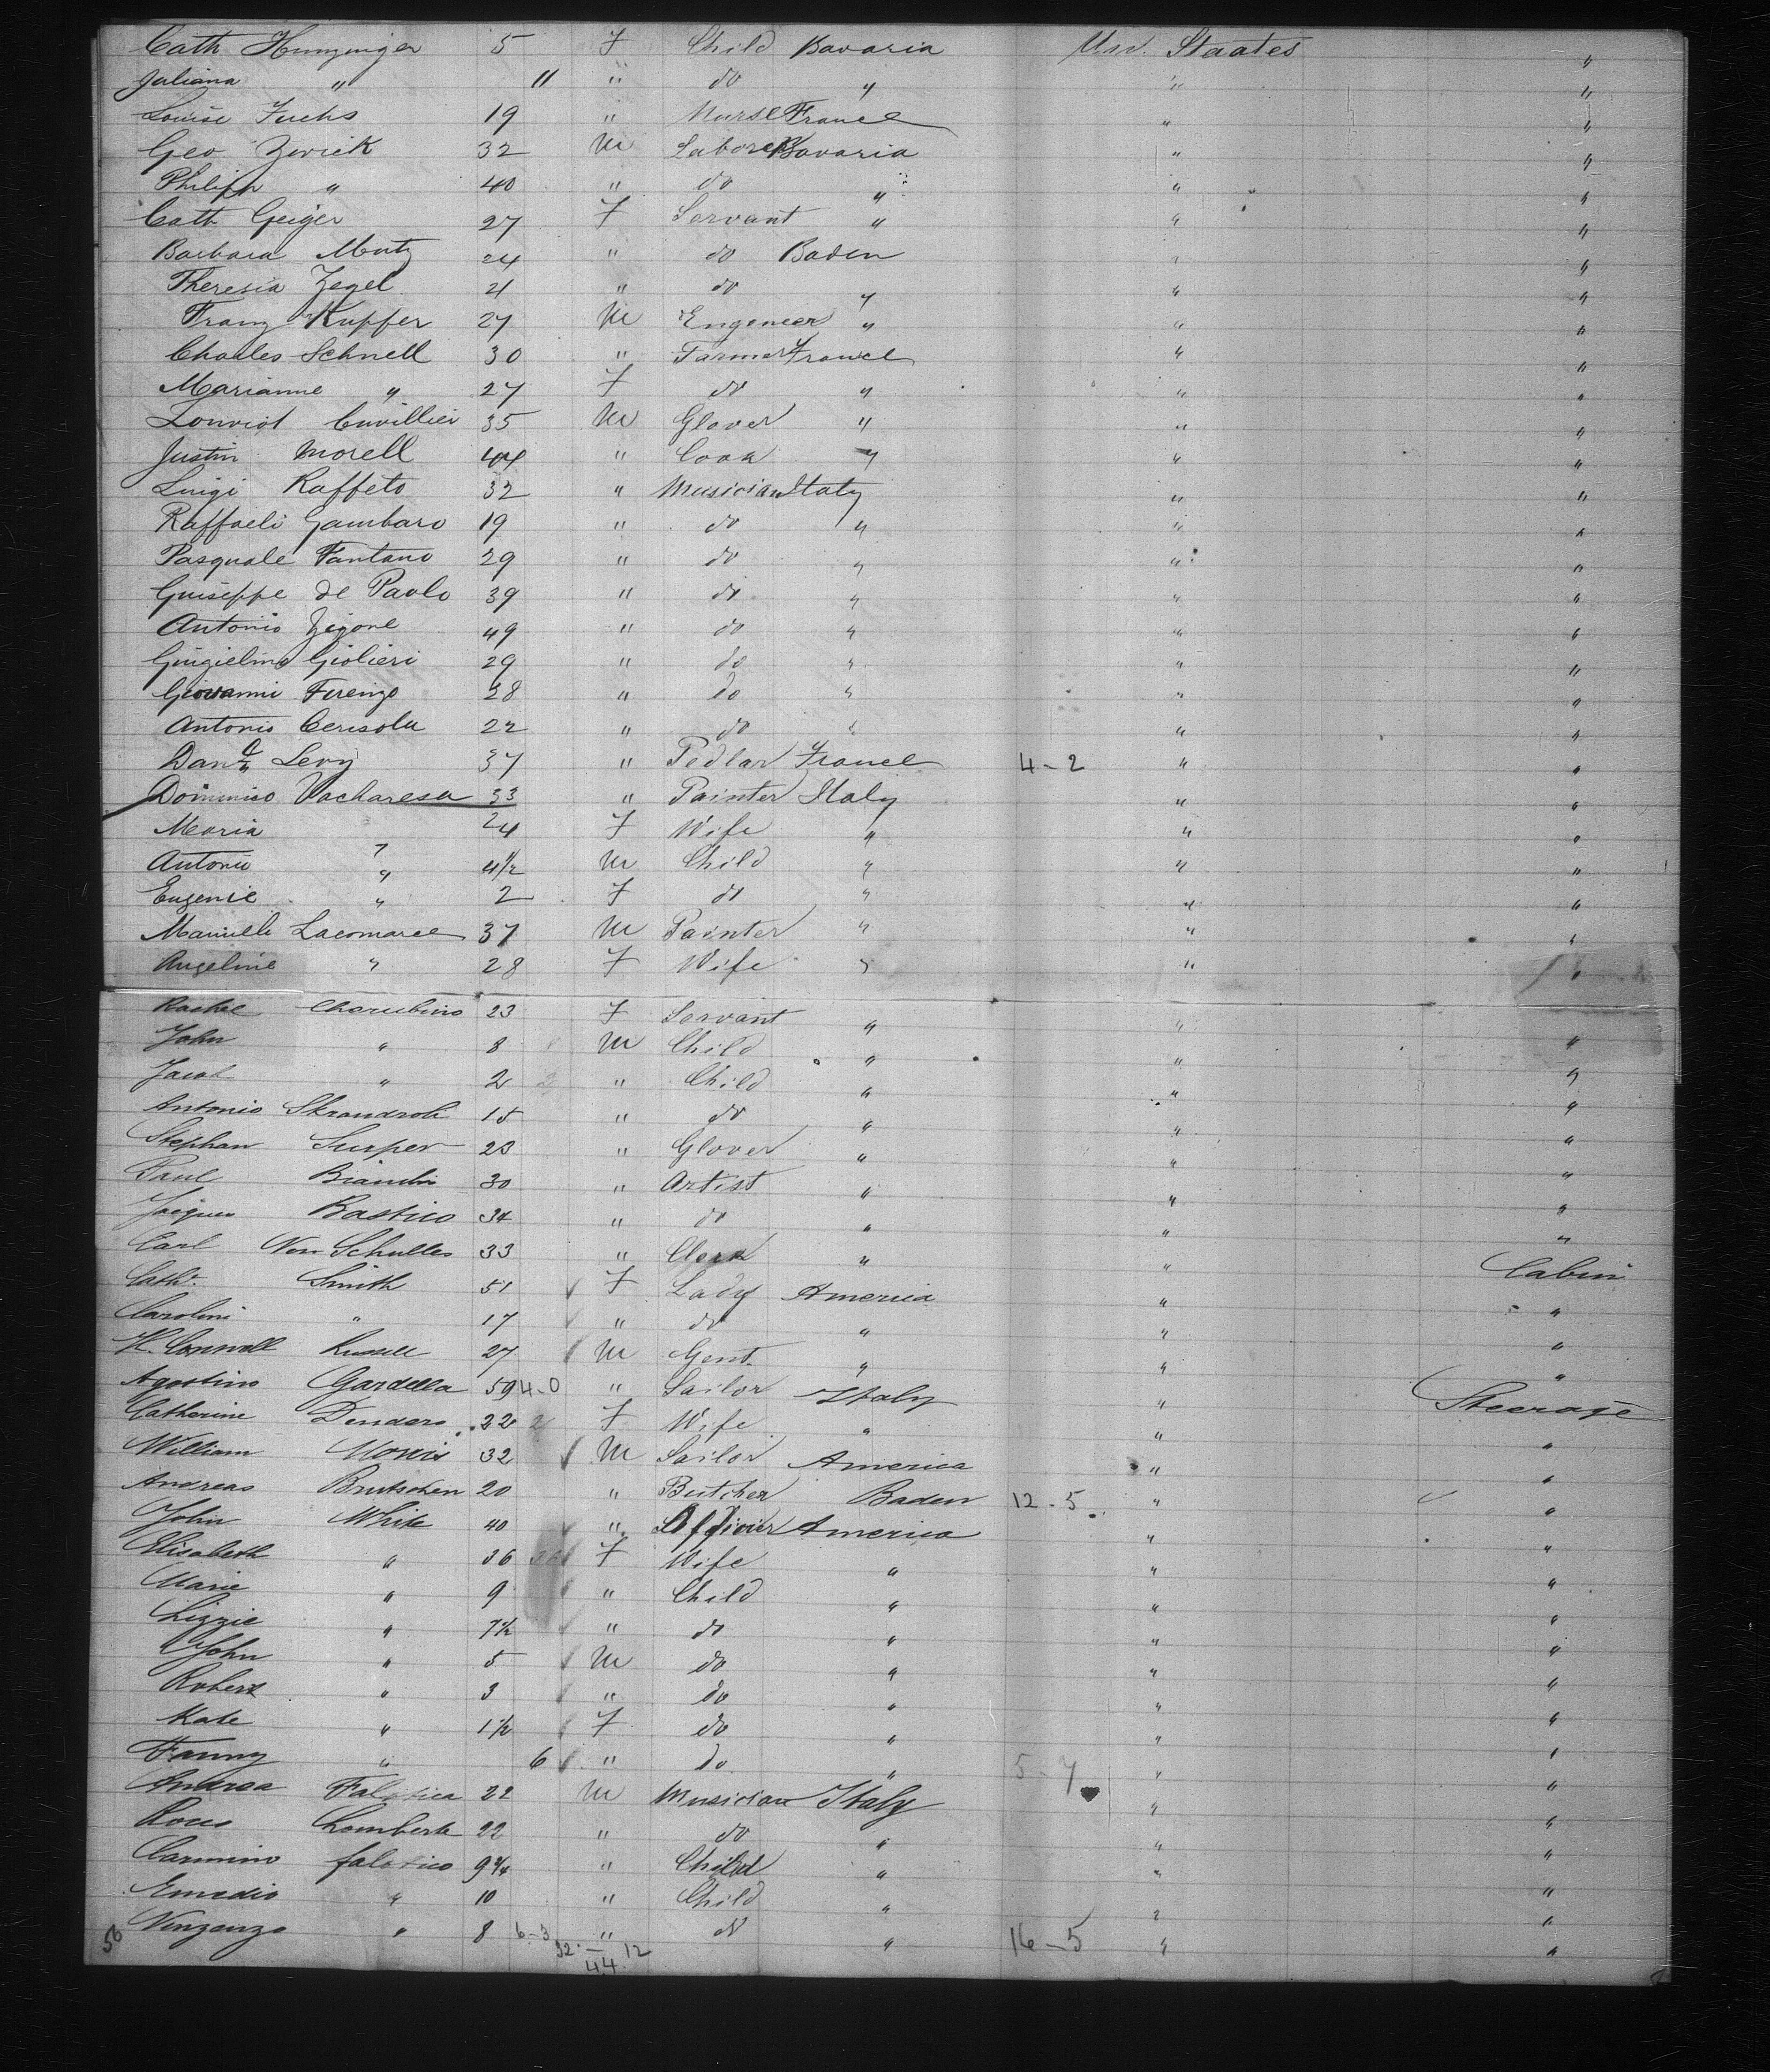 Cath Hunzinger 5 F Child Bavaria Un. Staates "
Juliana " 11 " do " " "
Louise Fuchs 19 " Nurse France " "
Geo Zwick 32 M Laborer Bavaria " "
Philipp " 40 " do " " "
Cath Geiger 27 F Servant " " "
Barbara Mutz 24 " do Baden " "
Theresia Zegel 21 " do " " "
Franz Kupfer 27 M Engeneer " " "
Charles Schnell 30 " Farmer France " "
Marianne " 27 F do " " "
Louviot Cuvillier 35 M Glover " " "
Justin Morell 44 " Cook " " "
Luigi Raffeto 32 " Musician Italy " "
Raffaeli Gambaro 19 " do " " "
Pasquale Fantano 29 " do " " "
Guiseppe de Paolo 39 " do " " "
Antonio Zigone 49 " do " " "
Giugielmo Giolieri 29 " do " " "
Giovanni Firenzo 28 " do " " "
Antonio Cerisola 22 " do " " "
Danl Levy 37 " Pedlar France 4-2 " "
Dominico Vacharesa 33 " Painter Italy " "
Maria " 24 F Wife " " "
Antonio " 4 1/2 M Child " " "
Eugenie " 2 F do " " "
Manuelle Lacomaree 37 M Painter " " "
Angeline " 28 F Wife " " "
Rachel Cherubino 23 F Servant " " "
John " 8 M Child " " "
Jacob " 2 " Child " " "
Antonio Skrandroli 15 " do " " "
Stephan Surper 28 " Glover " " "
Paul Bianchi 30 " Artist " " "
Jacques Rastico 34 " do " " "
Carl Von Schulles 33 " Clerk " " Cabin
Cath. Smith 51 F Lady America " "
Caroline " 17 " do " " "
H. Conwell Russell 27 M Gent. " " "
Agostino Gardella 59 4-0 " Sailor Italy " Steerage
Catherine Denders 22 2 F Wife " " "
William Morris 32 M Sailor America " "
Andreas Brutschen 20 " Butcher Baden 12-5 " "
John White 40 " Officier America " "
Elisabeth " 36 F Wife " " "
Marie " 9 " Child " " "
Lizzie " 7 1/2 " do " " "
John " 5 M do " " "
Robert " 3 " do " " "
Kate " 1 1/2 F do " " "
Fanny " 6 " do " 5-7 " "
Andrea Falotica 22 M Musician Italy " "
Rocco Lomberte 22 " do " " "
Carmino falotico 9 3/4 " Child " " "
Emedio " 10 " Child " " "
Vinzenzo " 8 6-3 " do " 16-5 " "
56 32 - 12
44